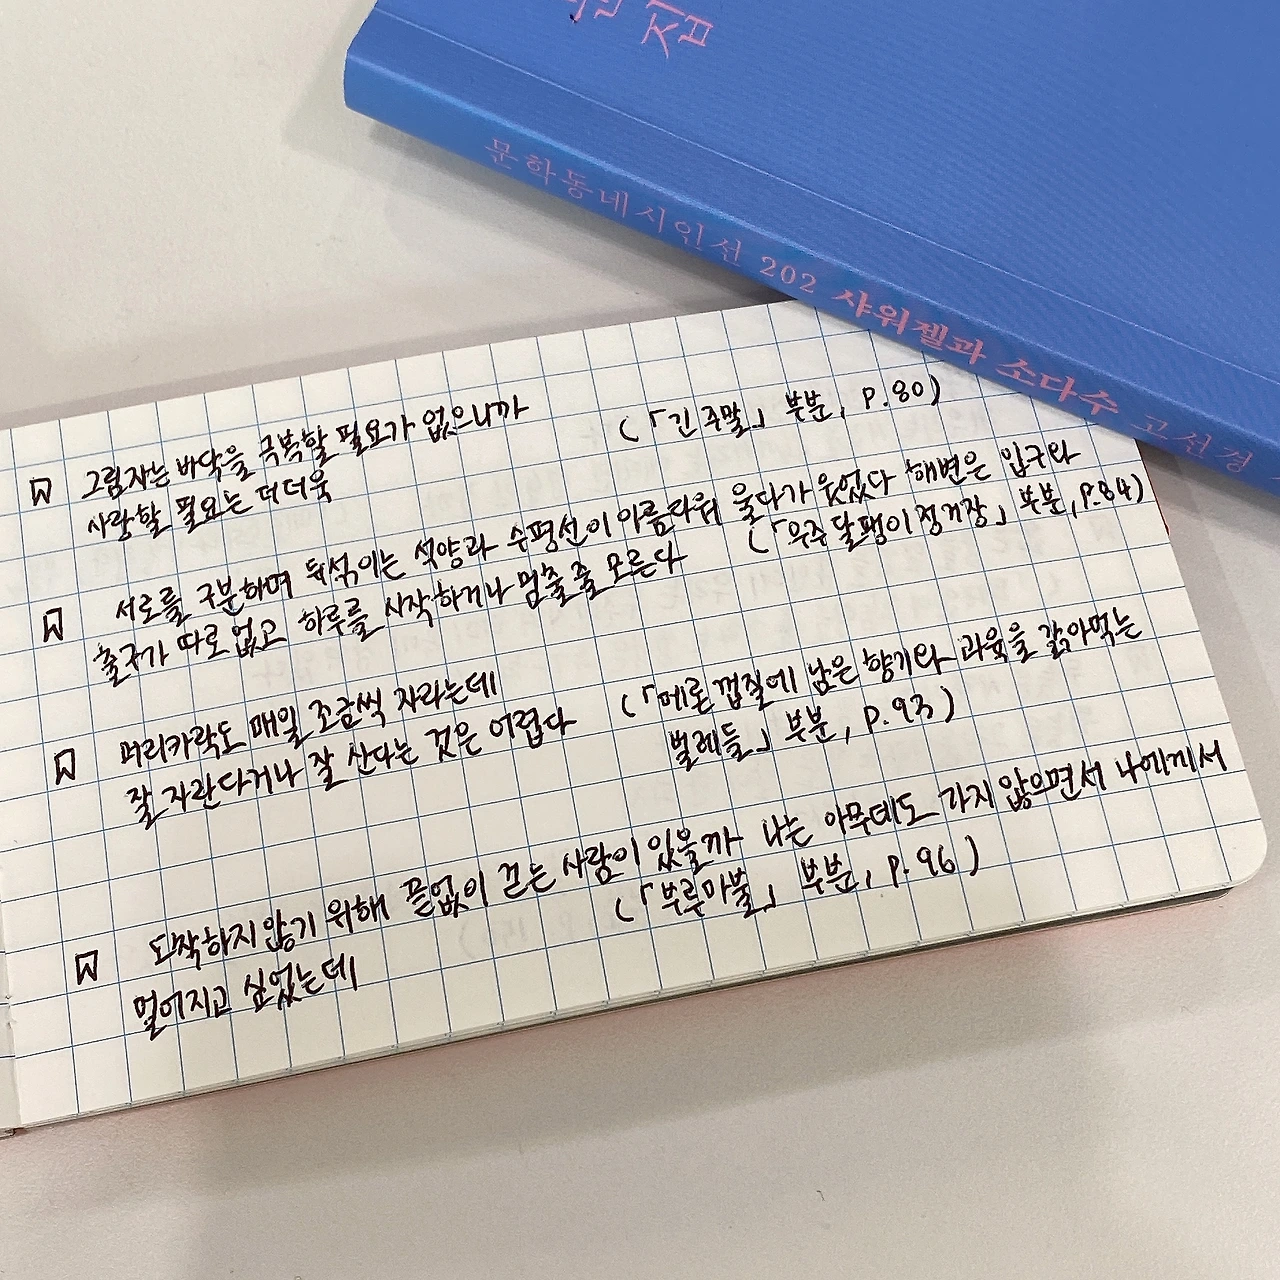 집
문학동네시인선 202 샤워젤과 소다수 고선경
그림자는 바닥을 극복할 필요가 없으니까
사랑할 필요는 더더욱
(「긴 주말」 부분, p.80)
서로를 구분하며 뒤섞이는 석양과 수평선이 아름다워 울다가 웃었다 해변은 입구와
출구가 따로 없고 하루를 시작하거나 멈출 줄 모른다
(「우주 달팽이 정거장」 부분, p.84)
머리카락도 매일 조금씩 자라는데
잘 자란다거나 잘 산다는 것은 어렵다
(「메론 껍질에 남은 향기와 과육을 갉아먹는
벌레들」 부분, p.93)
도착하지 않기 위해 끝없이 걷는 사람이 있을까 나는 아무데도 가지 않으면서 나에게서
멀어지고 싶었는데
(「부루마불」 부분, p.96)